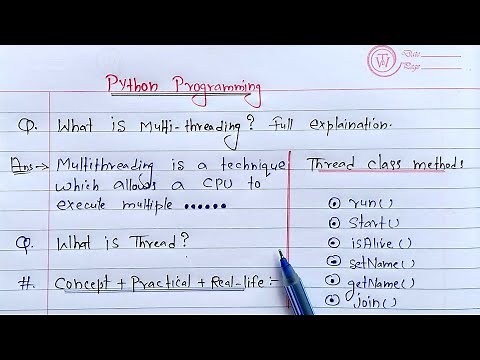 TW
Date
Page
Python Programming
Q. What is Multi-threading? Full explaination.
Ans → Multithreading is a technique
which allows a CPU to
execute multiple ......
Q. What is Thread?
#. Concept + Practical + Real-life :-
Thread class methods
run()
Start()
isAlive()
setName()
getName()
join()